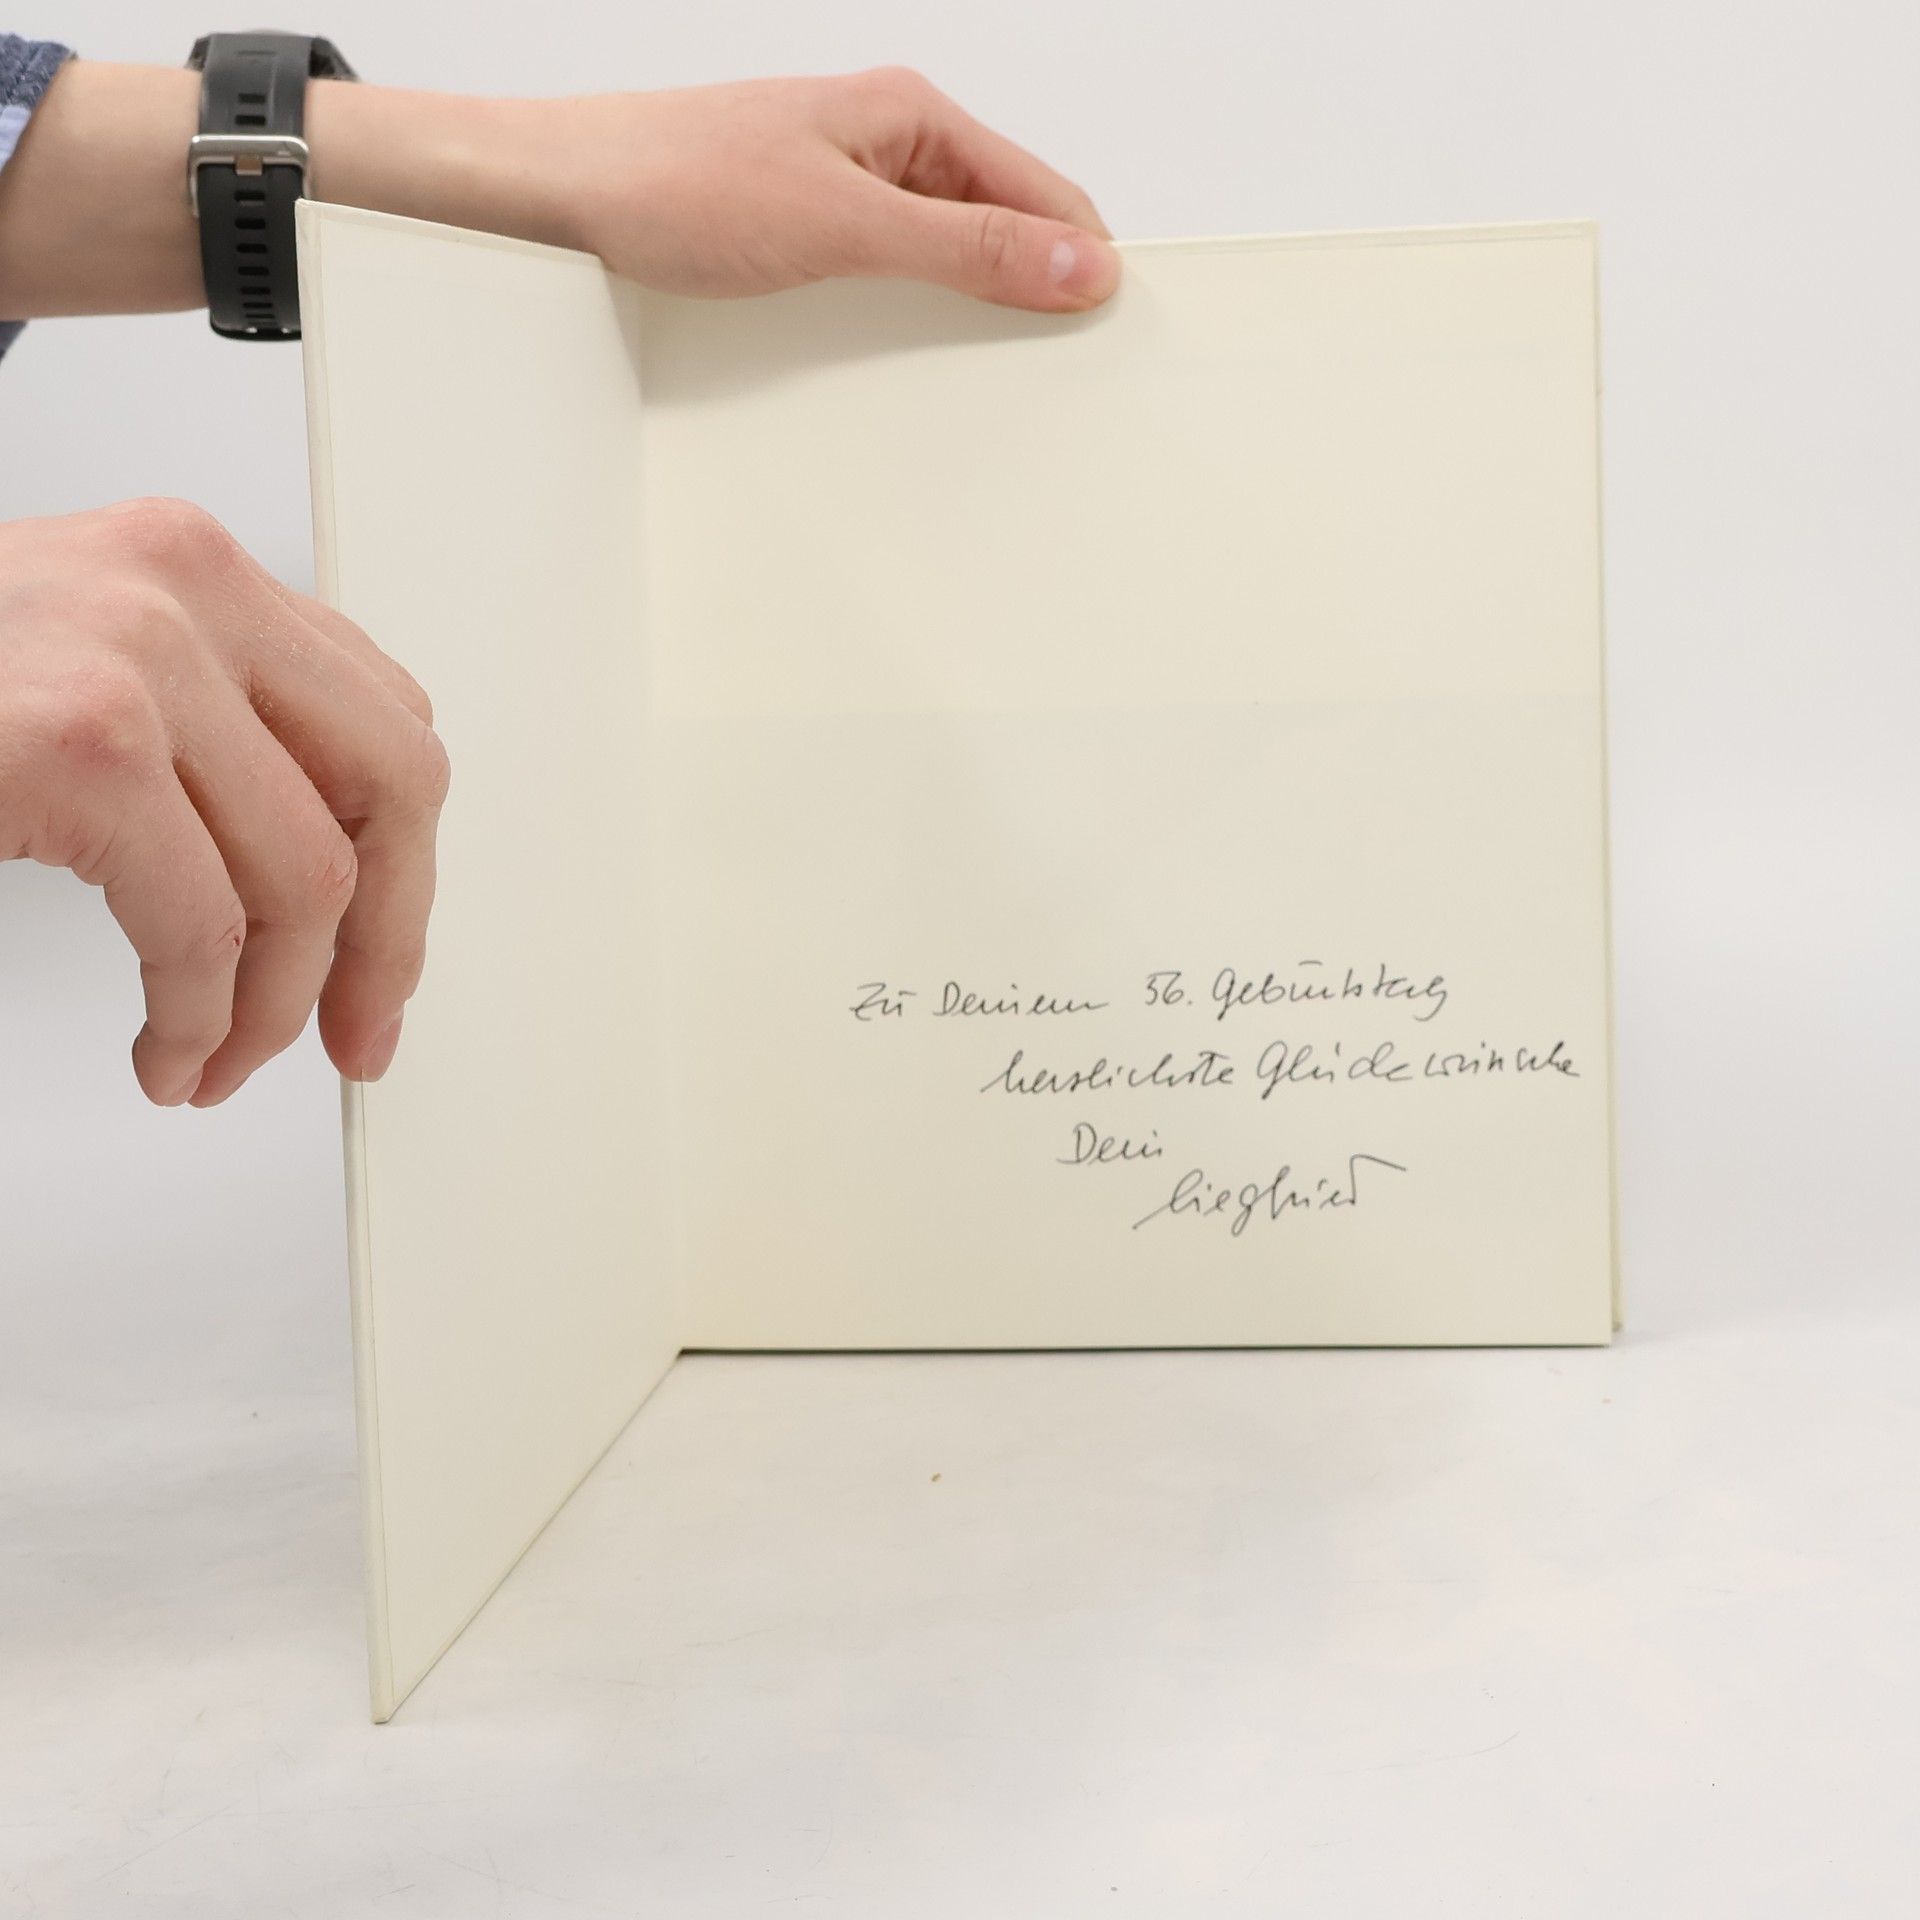 Zu Deinem 56. Geburtstag
herzlichste Glückwünsche
Dein
Siegfried